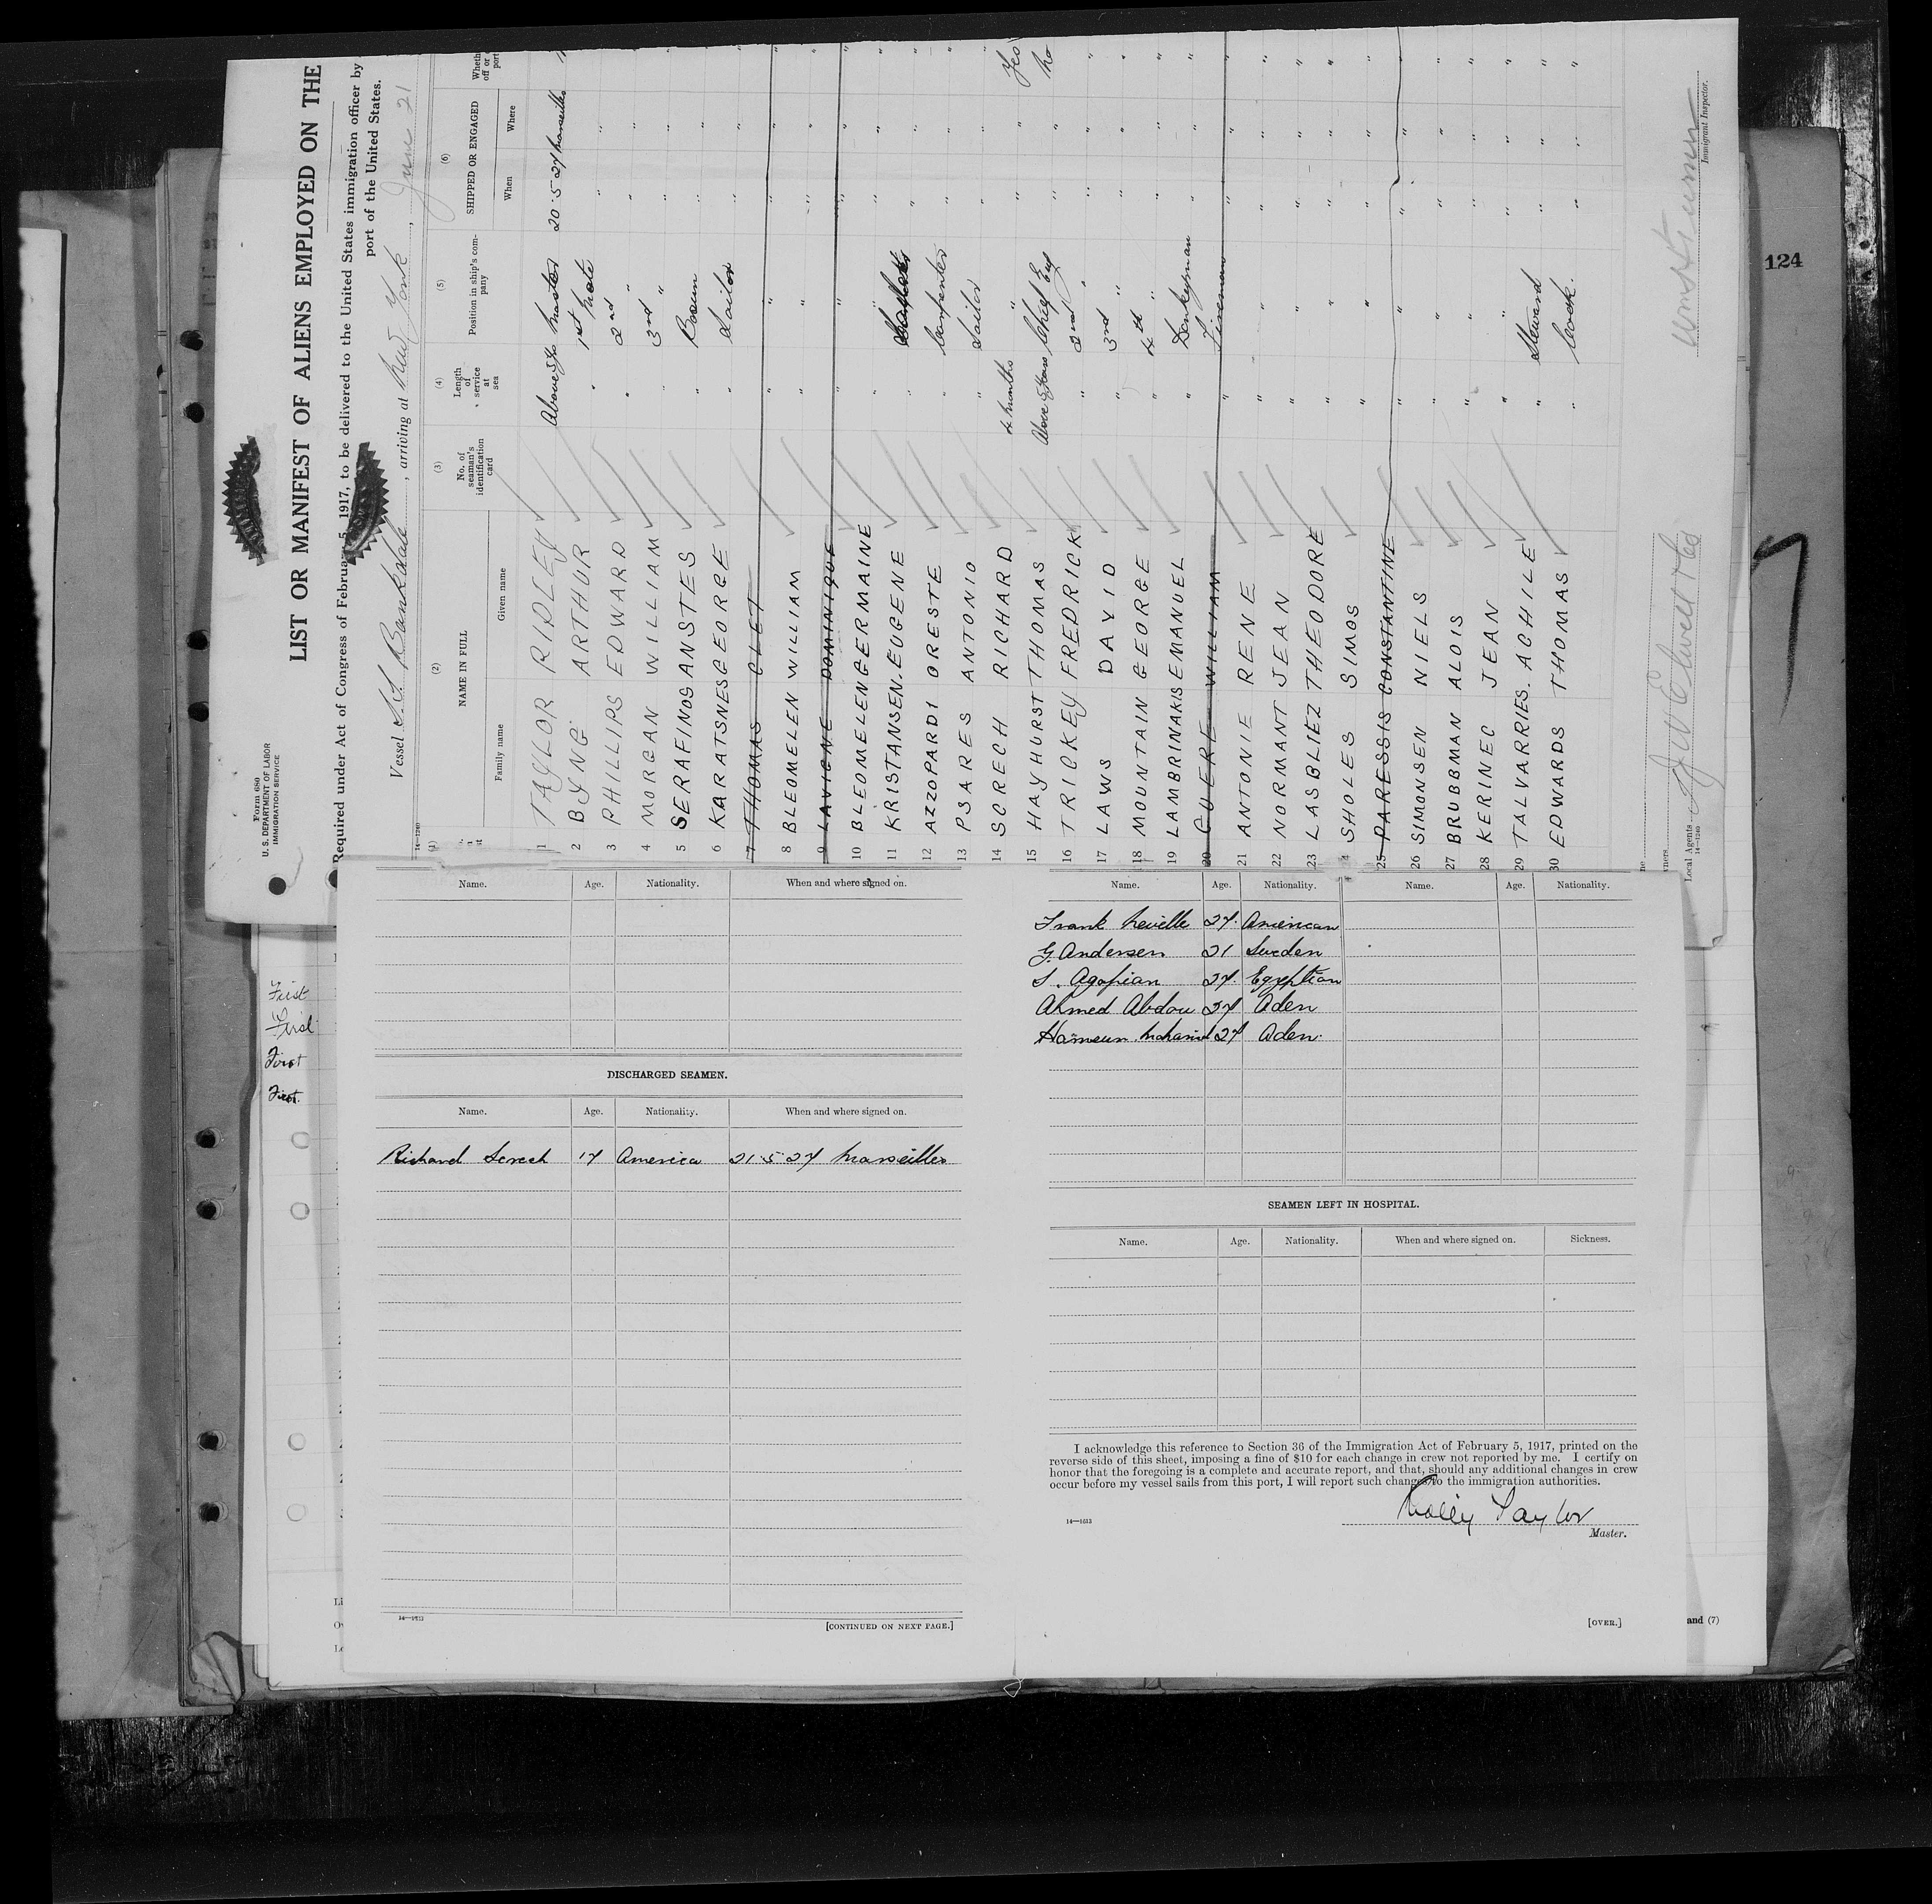 Form 680
U. S. DEPARTMENT OF LABOR
IMMIGRATION SERVICE
LIST OR MANIFEST OF ALIENS EMPLOYED ON THE
Required under Act of Congress of February 5, 1917, to be delivered to the United States immigration officer by
port of the United States.
Vessel S.S. Bankdale, arriving at New York, June 21
14-1240
(1) (2) (3) (4) (5) (6)
NAME IN FULL No. of seaman's identification card Length of service at sea Position in ship's company SHIPPED OR ENGAGED
Family name Given name When Where
1 TAYLOR RIDLEY Above 5 Yrs Master 20.5.27 Marseilles
2 BYNG ARTHUR " 1st Mate " "
3 PHILLIPS EDWARD " 2nd " " "
4 MORGAN WILLIAM " 3rd " " "
5 SERRAFINOS ANSTES " Bosun " "
6 KARRATSNES GEORGE " Sailor " "
7 THOMAS CLET " " " "
8 BLEOMELEN WILLIAM " " " "
9 LAVIGNE DOMINIQUE " " " "
10 BLEOMELEN GERMAINE " " " "
11 KRISTANSEN. EUGENE " " "
12 AZZOPARDI ORESTE " Carpenter " "
13 PSARES ANTONIO " Sailor " "
14 SCREECH RICHARD 4 months " " " Yes
15 HAYHURST THOMAS Above 5 Years Chief Eng " " No
16 TRICKEY FREDRICK " 2nd " " " "
17 LAWS DAVID " 3rd " " " "
18 MOUNTAIN GEORGE " 4th " " " "
19 LAMBRINAKIS EMANUEL " Donkeyman " " "
20 GUERRE WILLIAM " Fireman " " "
21 ANTONIE RENE " " " " "
22 NORMANT JEAN " " " " "
23 LASBLIEZ THEODORE " " " " "
SHOLES SIMOS " " " " "
25 PARESSIS CONSTANTINE " " " " "
26 SIMONSEN NIELS " " " " "
27 BRUBBMAN ALOIS " " " " "
28 KERINEC JEAN " " " " "
29 TALVARRIES. ACHILE " Steward " " "
30 EDWARDS THOMAS " Cook. " " "
Local Agents
14-1240
Immigrant Inspector.
124
First
First
First
First.
Name. Age. Nationality. When and where signed on.
DISCHARGED SEAMEN.
Name. Age. Nationality. When and where signed on.
Richard Screech 17 America 21.5.27 Marseilles
14-1613
[CONTINUED ON NEXT PAGE.]
Name. Age. Nationality. Name. Age. Nationality.
Frank Neville 27. American
G. Andersen 21 Sweden
S. Agopian 27. Egyptian
Ahmed Abdou 27 Aden
27 Aden.
SEAMEN LEFT IN HOSPITAL.
Name. Age. Nationality. When and where signed on. Sickness.
I acknowledge this reference to Section 36 of the Immigration Act of February 5, 1917, printed on the
reverse side of this sheet, imposing a fine of $10 for each change in crew not reported by me. I certify on
honor that the foregoing is a complete and accurate report, and that, should any additional changes in crew
occur before my vessel sails from this port, I will report such changes to the immigration authorities.
Taylor
Master.
14-1613
[OVER.]
and (7)